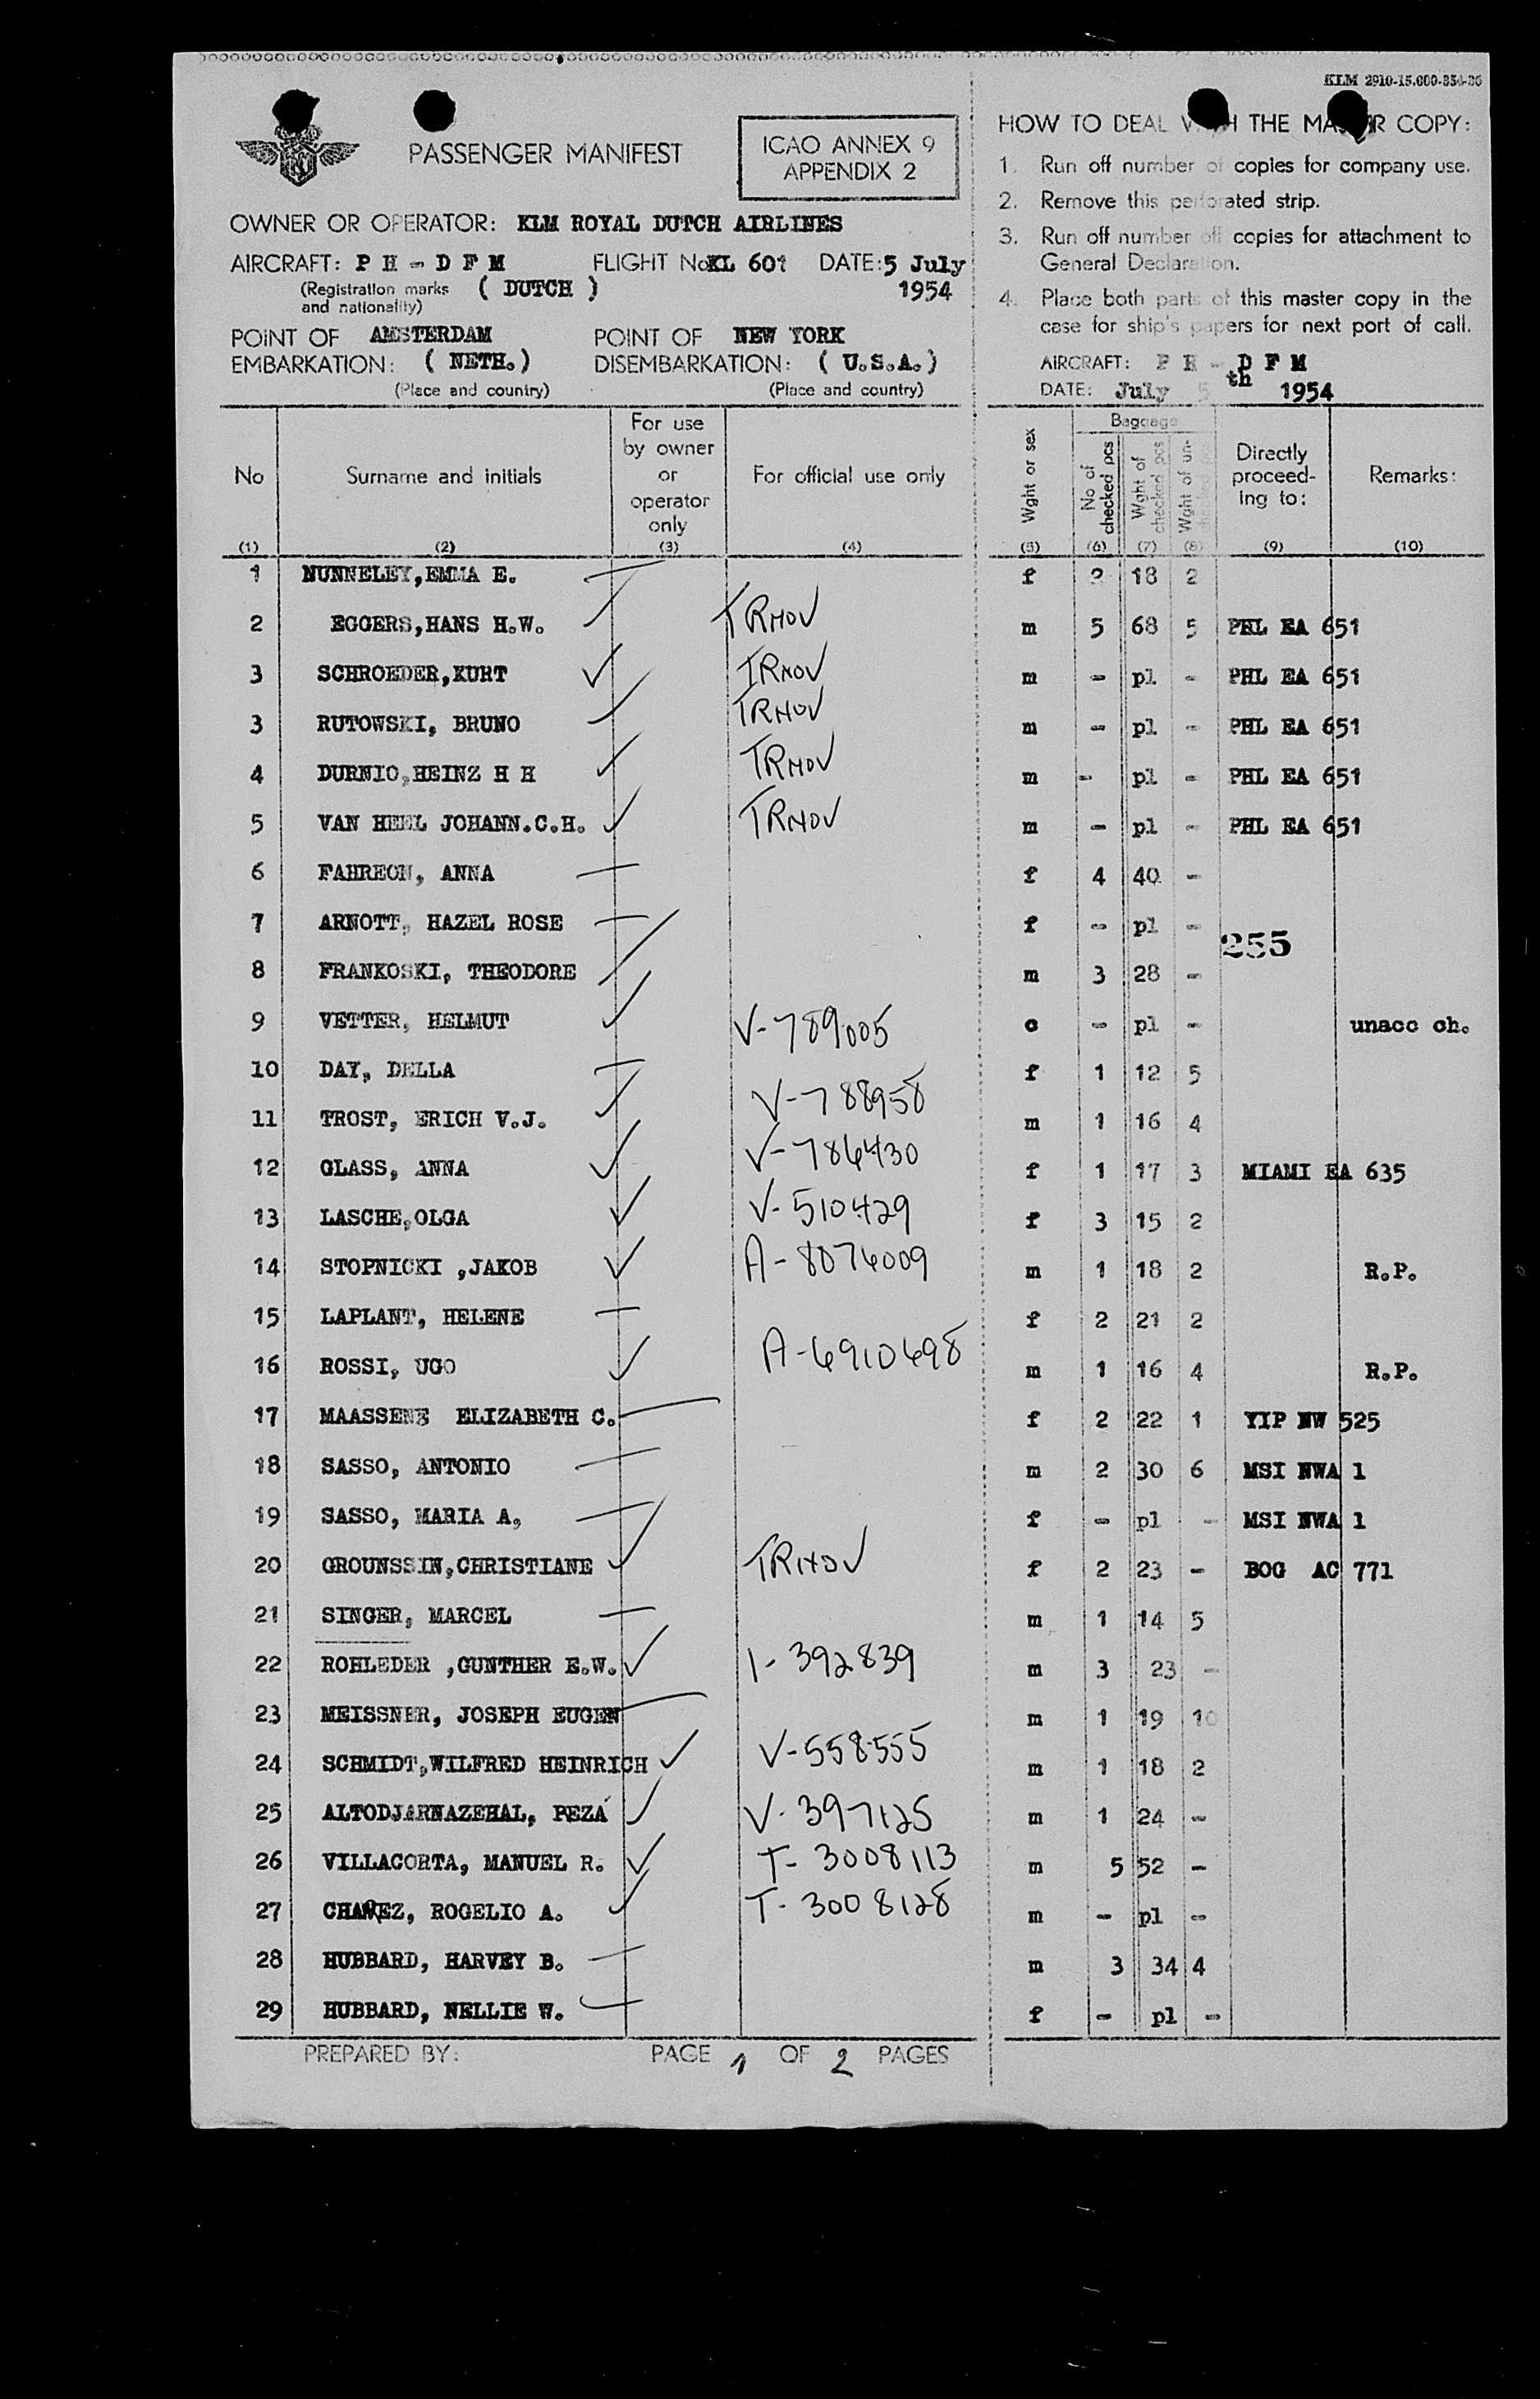 KLM 2910-15.000-354-36
PASSENGER MANIFEST
ICAO ANNEX 9
APPENDIX 2
OWNER OR OPERATOR: KLM ROYAL DUTCH AIRLINES
AIRCRAFT: P H - D F M FLIGHT No KL 601 DATE: 5 July
(Registration marks ( DUTCH ) 1954
and nationality)
POINT OF AMSTERDAM POINT OF NEW YORK
EMBARKATION: ( NETH.) DISEMBARKATION: ( U.S.A.)
(Place and country) (Place and country)
HOW TO DEAL WITH THE MASTER COPY:
1. Run off number of copies for company use.
2. Remove this perforated strip.
3. Run off number off copies for attachment to
General Declaration.
4. Place both parts of this master copy in the
case for ship's papers for next port of call.
AIRCRAFT: P H - D F M
DATE: July 5th 1954
No Surname and initials For use by owner or operator only For official use only Wght or sex Baggage No of checked pcs Wght of checked pcs Wght of un- Directly proceed-ing to: Remarks:
(1) (2) (3) (4) (5) (6) (7) (8) (9) (10)
1 NUNNELEY,EMMA E. f 2 18 2
2 EGGERS,HANS H.W. TRNOV m 5 68 5 PHL EA 651
3 SCHROEDER,KURT TRNOV m - pl - PHL EA 651
3 RUTOWSKI, BRUNO TRNOV m - pl - PHL EA 651
4 DURNIO,HEINZ H H TRNOV m - pl - PHL EA 651
5 VAN HEEL JOHANN.C.H. TRNOV m - pl - PHL EA 651
6 FAHREON, ANNA f 4 40 -
7 ARNOTT, HAZEL ROSE f - pl -
255
8 FRANKOSKI, THEODORE m 3 28 -
9 VETTER, HELMUT V-789005 c - pl - unacc ch.
10 DAY, DELLA f 1 12 5
11 TROST, ERICH V.J. V-788958 m 1 16 4
12 GLASS, ANNA V-786430 f 1 17 3 MIAMI EA 635
13 LASCHE,OLGA V-510429 f 3 15 2
14 STOPNICKI ,JAKOB A-8076009 m 1 18 2 R.P.
15 LAPLANT, HELENE f 2 21 2
16 ROSSI, UGO A-6910698 m 1 16 4 R.P.
17 MAASSENE ELIZABETH C. f 2 22 1 YIP NW 525
18 SASSO, ANTONIO m 2 30 6 MSI NWA 1
19 SASSO, MARIA A, f - pl - MSI NWA 1
20 GROUNSSIN,CHRISTIANE TRNOV f 2 23 - BOG AC 771
21 SINGER, MARCEL m 1 14 5
22 ROHLEDER ,GUNTHER E.W. I-392839 m 3 23 -
23 MEISSNER, JOSEPH EUGEN m 1 19 10
24 SCHMIDT,WILFRED HEINRICH V-558555 m 1 18 2
25 ALTODJARNAZEHAL, PEZA V-397125 m 1 24 -
26 VILLACORTA, MANUEL R. T-3008113 m 5 52 -
27 CHAVEZ, ROGELIO A. T-3008128 m - pl -
28 HUBBARD, HARVEY B. m 3 34 4
29 HUBBARD, NELLIE W. f - pl -
PREPARED BY: PAGE 1 OF 2 PAGES